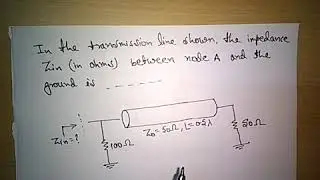 In the transmission line shown, the impedance
Zin (in ohms) between node A and the
ground is
Zin=?
100Ω
Z0=50Ω, L=0.5λ
50Ω